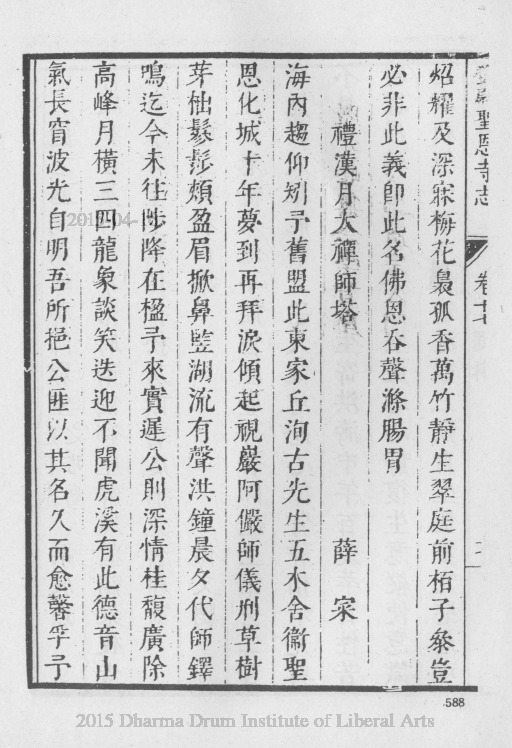 鄧尉聖恩寺志
卷十七
炤耀及深寐梅花裊孤香萬竹靜生翠庭前栢子叅豈
必非此義卽此名佛恩吞聲滌腸胃
禮漢月大禪師塔
薛寀
海內趨仰矧予舊盟此東家丘洵古先生五水舍衞聖
恩化城十年夢到再拜淚傾起視嚴阿儼師儀刑草樹
芽柮鬖髿頰盈眉掀鼻竪湖流有聲洪鐘晨夕代師鐸
鳴迄今未往陟降在楹予來實遲公則深情桂馥廣除
高峰月橫三四龍象談笑迭迎不聞虎溪有此德音山
氣長宵波光自明吾所挹公匪以其名久而愈馨乎予
588
2015 Dharma Drum Institute of Liberal Arts